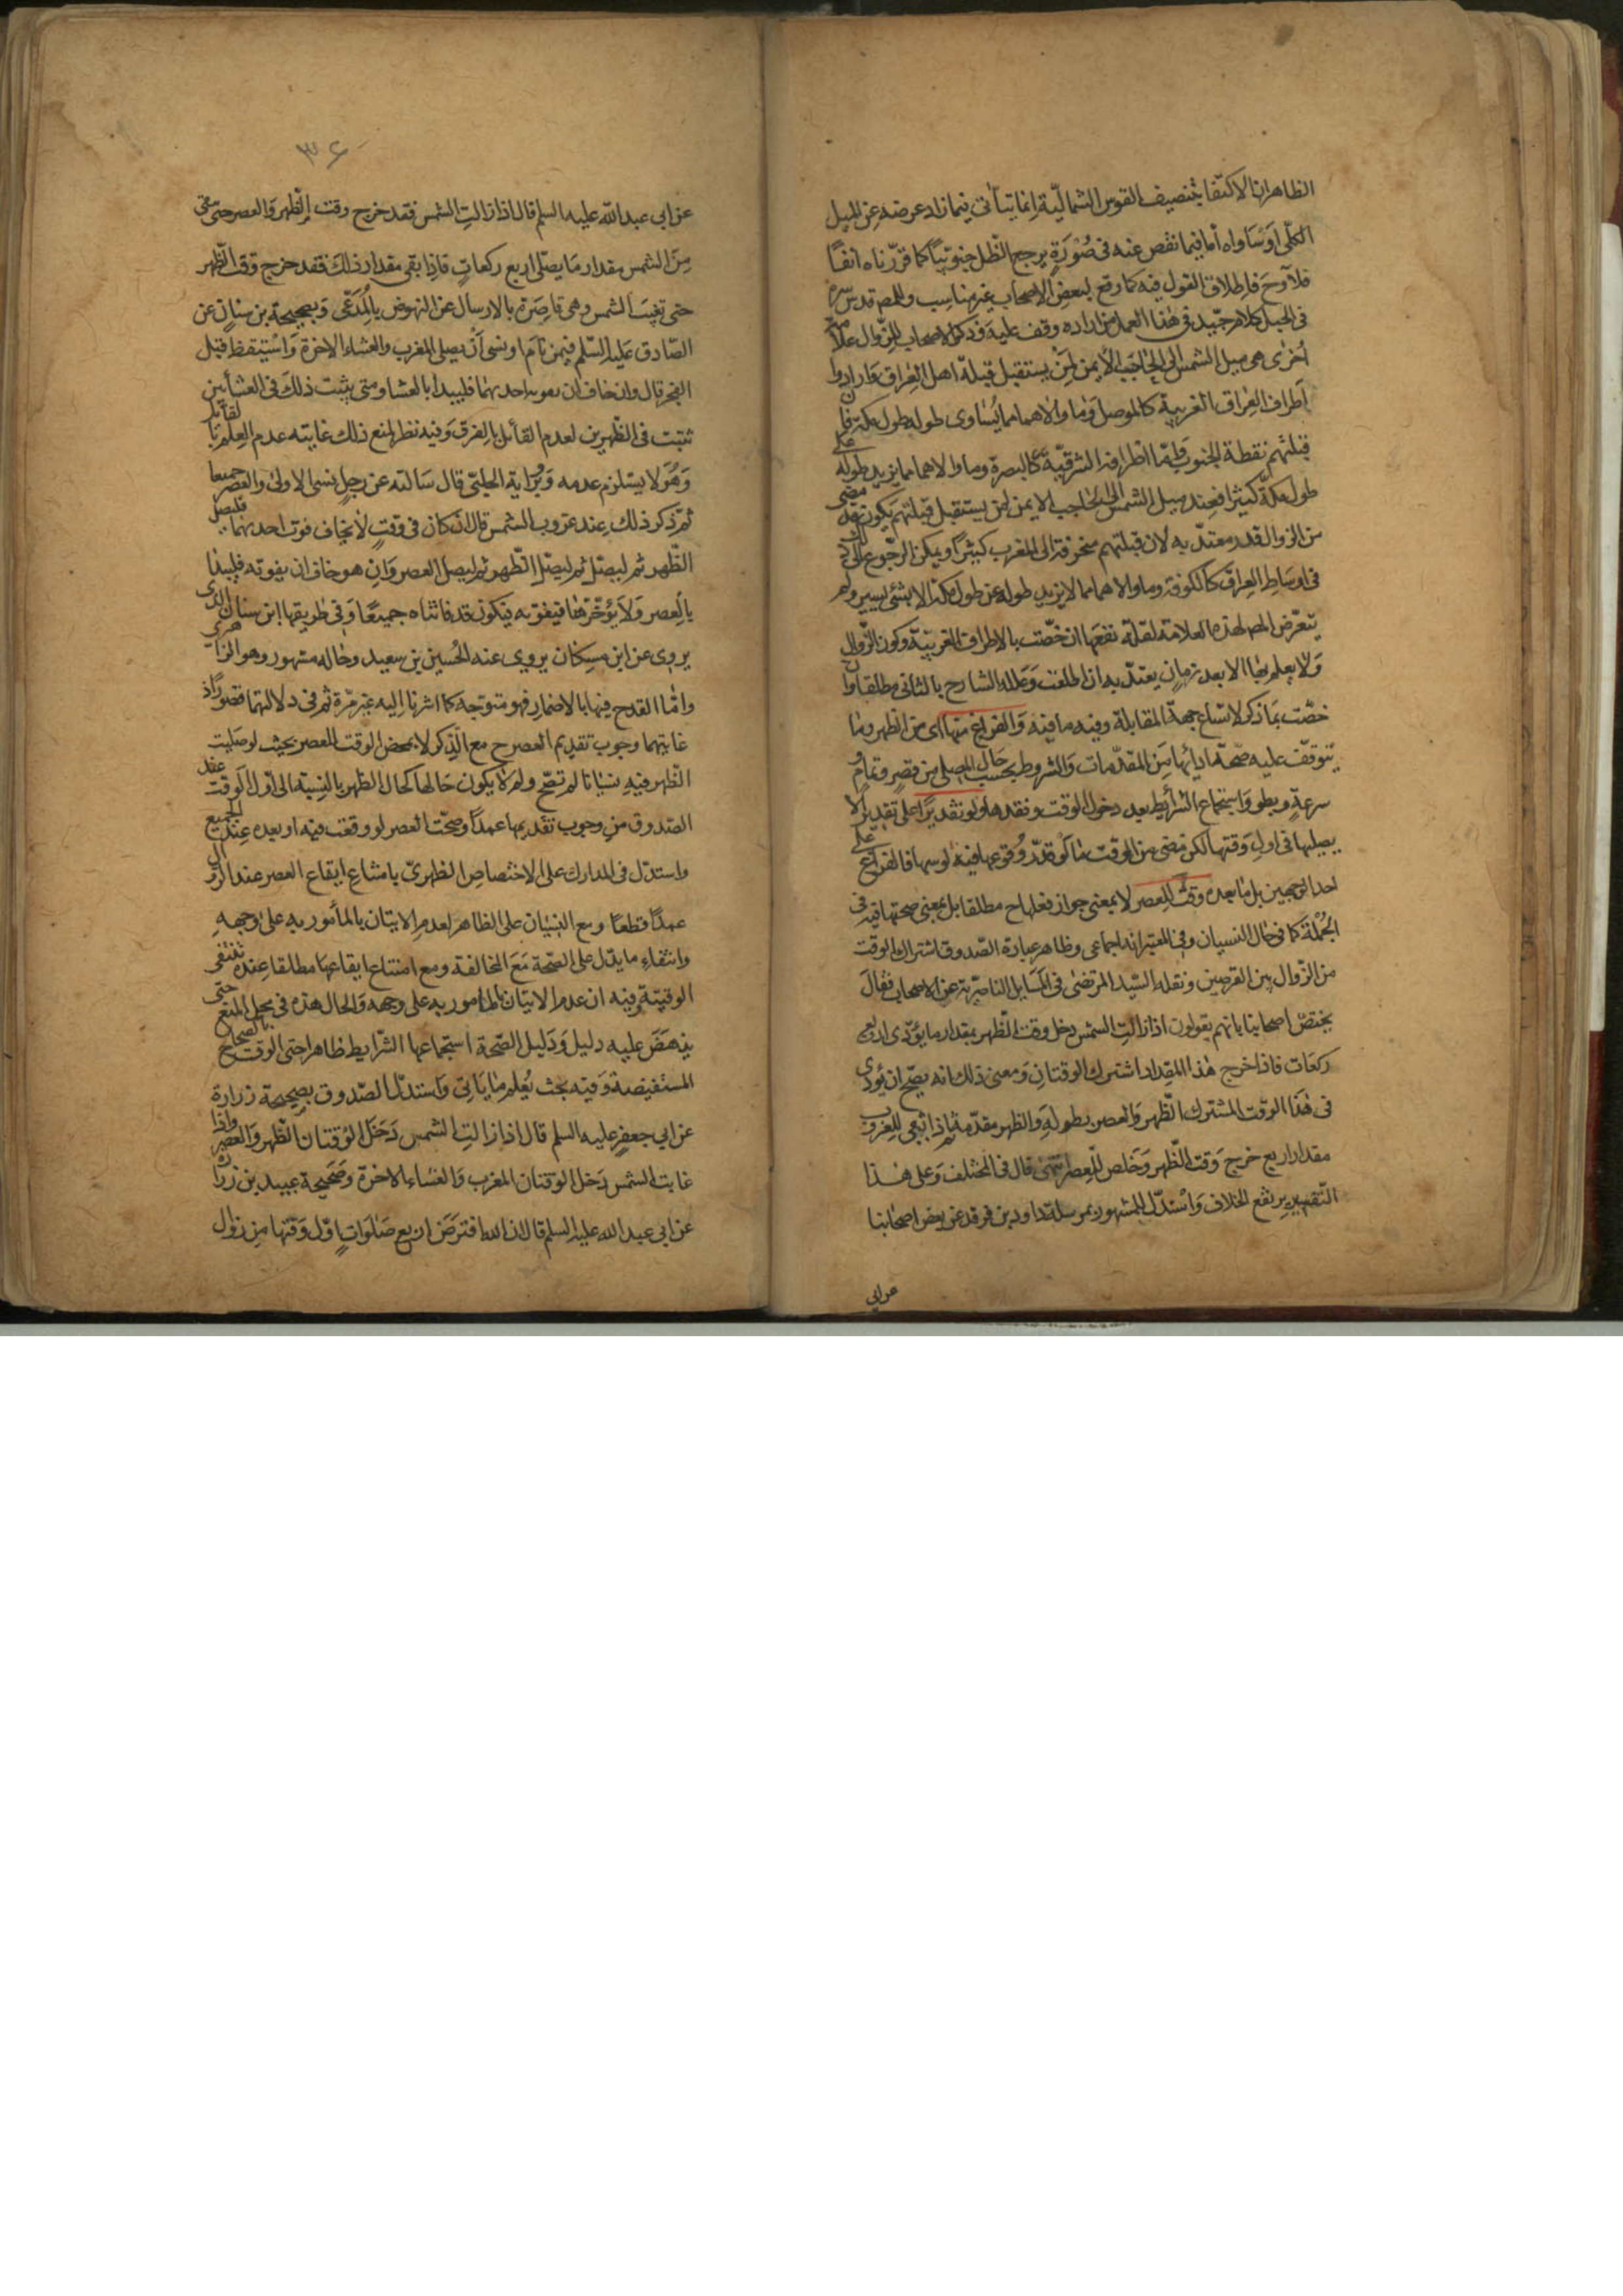 الظاهر ان الاكتفا بتنصيف القوس الشماليّة انما يتأتى فيما زاد عرضه عن الميل
الكلّى او ساواه أما فيما نقص عنه فى صُوْرَةٍ يرجع الظّل جنوبيّاً كما قرّرناه انفًا
فلا وحَ فاطلاق القول فيه كما وقع لبعض الاصحاب غير مناسب وللمص قدس سره
فى الحبل كلام جيّد فى هذا العمل من اراده وقف عليه وذكر الاصحاب للزّوال علامة
اُخرٰى هى ميل الشمس الى الحاجَب الأيمن لمَنْ يستقبل قبلة اهل العِراق وارادوا
اَطراف العِراق الغربية كالموصل وما والاهما مما يُسَاوى طوله طول مكة فان
قبلتهم نقطة الجنوب وامّا اطرافه الشرقيّة كالبصرة وما والاهما مما يزيد طوله على
طول مكة كثيرًا فعند ميل الشمس الى الحاجب الايمن لمن يستقبل قبلتهم يكون قد مضى
من الزوال قدر معتدّ به لان قبلتهم منحرفة الى المغرب كثيرًا ويمكن الرّجوع الى ذلك
فى اوسَاط العِراق كالكوفة وما والاهما مما لا يزيد طوله عن طول مكة الا بشئ يسير ولم
يتعرّض المص لهذه العلامة لقلة نفعها ان خصّت بالاطراف الغربيّة وكون الزّوال
ولا يعلم بها الا بعد زمان يعتدّ به ان اطلقت وَعلله الشارح بالثانى مطلقا وان
خصّت بما ذكر لاتساع جهة المقابلة وفيه ما فيه وَالفراغ منها اى من الظهر وما
يتوقف عليه صحّة ادائها من المقدّمات وَالشروط بحسب حَال المصلى من قصرٍ وتمامٍ و
سرعةٍ وبطو وَاستجماع الشرائط بعد دخول الوقت وفقدها ولو تقديرًا على تقدير الا
يصليها فى اول وَقتها لكن مضى من الوقت ما لو قدّر وُقوعها فيه لوسهما فالفراغ على
احد الوجهين بل ما بعده وقت للعصر لا بمعنى جواز فعلها ح مطلقا بل بمعنى صحتها فيه فى
الجُمْلة كما فى حَال النسيان وفى المعتبر انه اجماعى وظاهر عبارة الصّدوق اشتراك الوقت
من الزّوال بين الفرضين ونقله السّيد المرتضىٰ فى المسَايل الناصريّة عن الاصحاب فقال
يختصّ اصحابنا بانهم يقولون اذا زالتِ الشمس دخل وقت الظّهر بمقدار ما يؤدّى اربع
ركعَات فاذا خرج هٰذا المقدار اشترك الوقتانِ وَمعنى ذلك انه يصحّ ان يُؤدى
فى هٰذَا الوقت المشترك الظّهر وَالعصر بطوله وَالظهر مقدّمة ثم اذا بقى للغروب
مقدار اربع خرج وَقت الظّهر وَخلص للعصر انتهى قال فى المختلف وَعلى هٰذا
التّفسير يرتفع الخلاف وَاسْتدلّ للمشهور بمرسلة داود بن فرقد عن بعض اصحابنا
عن ابى
٣٦
عن ابى عبد الله عليه السلم قال اذا زالتِ الشمس فقد خرج وقت الظّهر وَالعصر حتى مضى
مِنَ الشمس مقدار مَا يصلّى اربع ركعاتٍ فاذا بقى مقدار ذلكَ فقد خرج وقت الظّهر
حتى تغيبَ الشمس وهى قاصِرَة بالارسال عن النهوض بالمُدّعٰى وَبصحيحة بن سنان عن
الصّادق عَليه السّلم فيمن نامَ او نسى اَنْ يصلى المغرب والعشاء الاخرة وَاسْتيقظ قبل
الفجر قال وان خاف ان تفوته احديهما فليبدا بالعشا ومتى يثبت ذلكَ فى العشائين
ثبتت فى الظّهرين لعدم القائل بالفرق وَفيه نظر لمنع ذلك غايته عدم العِلم بالقائل
وَهُو لا يستلزم عدمه وَبروَاية الحلبىّ قال سَالته عن رجلٍ نسى الاولىٰ والعصر جميعا
ثمّ ذكر ذلك عِند غروب الشمس قال ان كان فى وقتٍ لا يخاف فوت احديهما فليصل
الظّهر ثم ليصلّ ثم ليصلّ الظّهر ثم ليصل العصر وَان هو خاف ان يفوته فليبدا
بالعصر وَلَا يؤخّرها فيفوته فيكون قد فاتتاه جميعًا وَفى طريقها ابن سنان الذى
يروى عن ابن مسكان يروى عنه الحُسين بن سعيد وحاله مشهور وهو الزاهرى
وامّا القدح فيها بالاضمار فهو متوجّه كما اشرنا اليه غير مرّة ثم فى دلالتهما قصور اذ
غايتهما وجوب تقديم العصر ح مع الذّكر لا بمحض الوقت للعصر بحيث لو صليت
الظّهر فيه نسيانا لم تصحّ ولم لا يكون حَالها كحال الظهر بالنِسبة الى اوّل الوقت عند
الصّدوق من وجوب تقديمها عمدًا وصحّت العصر لو وقعت فيه او بعده عِند الجميع
واستدلّ فى المدارك على الاختصاص الظهرىّ بامتناع ايقاع العصر عند الزّوال
عمدًا قطعًا ومع النسيَان على الظاهر لعدم الاتيان بالمأمور به على وجههِ
وانتفاء ما يدّل على الصّحة مَعَ المخالفة ومع امتناع ايقاعها مطلقا عِنده تنتفى
الوقتيّة وفيه ان عدم الاتيان بالمامور به على وجهه وَالحال هذه فى محل المنع حتى
ينهَضَ عليه دليل وَدَليل الصّحة استجماعها الشّرايط ظاهرا حتى الوقت بالصحاح
المستفيضة وَفيه بحث يُعلم مما يَاتى وَاستدلّ الصّدوق بصحيحة زرارة
عن ابي جعفرٍ عليه السلم قال اذا زالتِ الشمس دَخَل الوُقتان الظّهر وَالعصر واذا
غابت الشمس دَخل الوقتان المغرب وَالعشاء الاخرة وَصَحيحة عبيد بن زرارة
عن ابى عبد الله عليه السلم قال ان الله افترَضَ اربع صَلوَاتٍ اوّل وَقتها من زوال